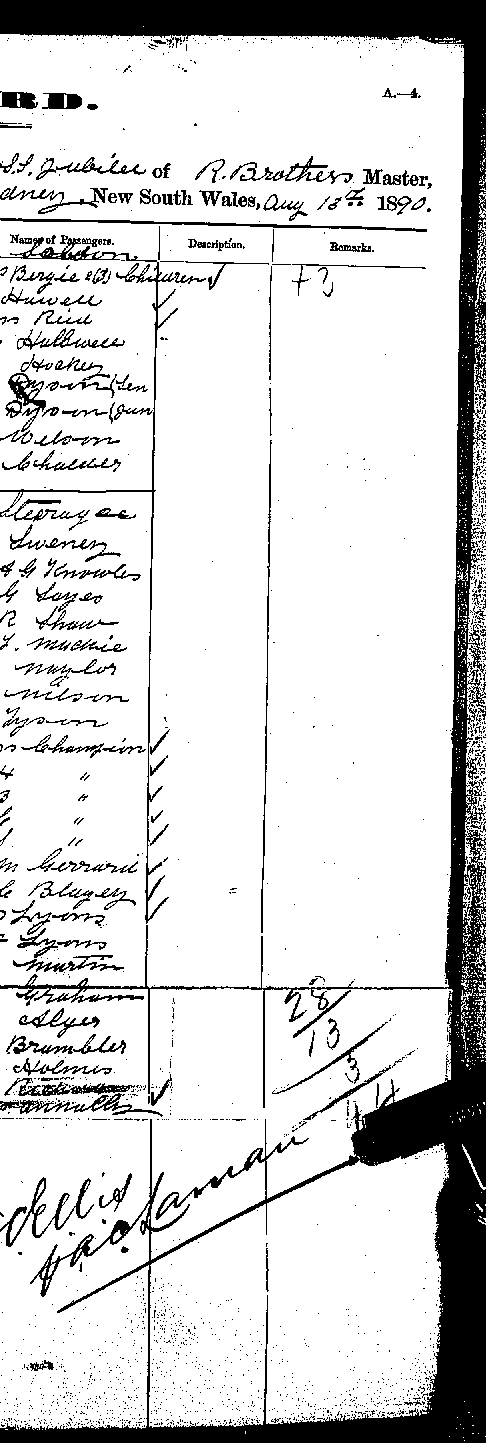 RD.
A.—4.
S.S. Jubilee of R. Brothers Master,
dney, New South Wales, Aug 13th 1890.
Names of Passengers. Description. Remarks.
Saloon
Bergie & (3) Children ✓ +3
Howell ✓
Reid ✓
Halliwell
Hockey
Dyson (Sen
Dyson (Jun
Nelson
Chalder
Steerage
Sweney
A G Knowles
G Sayes
R Shaw
T. Mackie
Naylor
Nilson
Tyson
Champion ✓
4 " ✓
3 " ✓
" ✓
" ✓
Gerrard ✓
Blagey ✓
Lyons ✓
Lyons
Martin
Graham
Alger
Brambler
Holmes
28
13
3
44